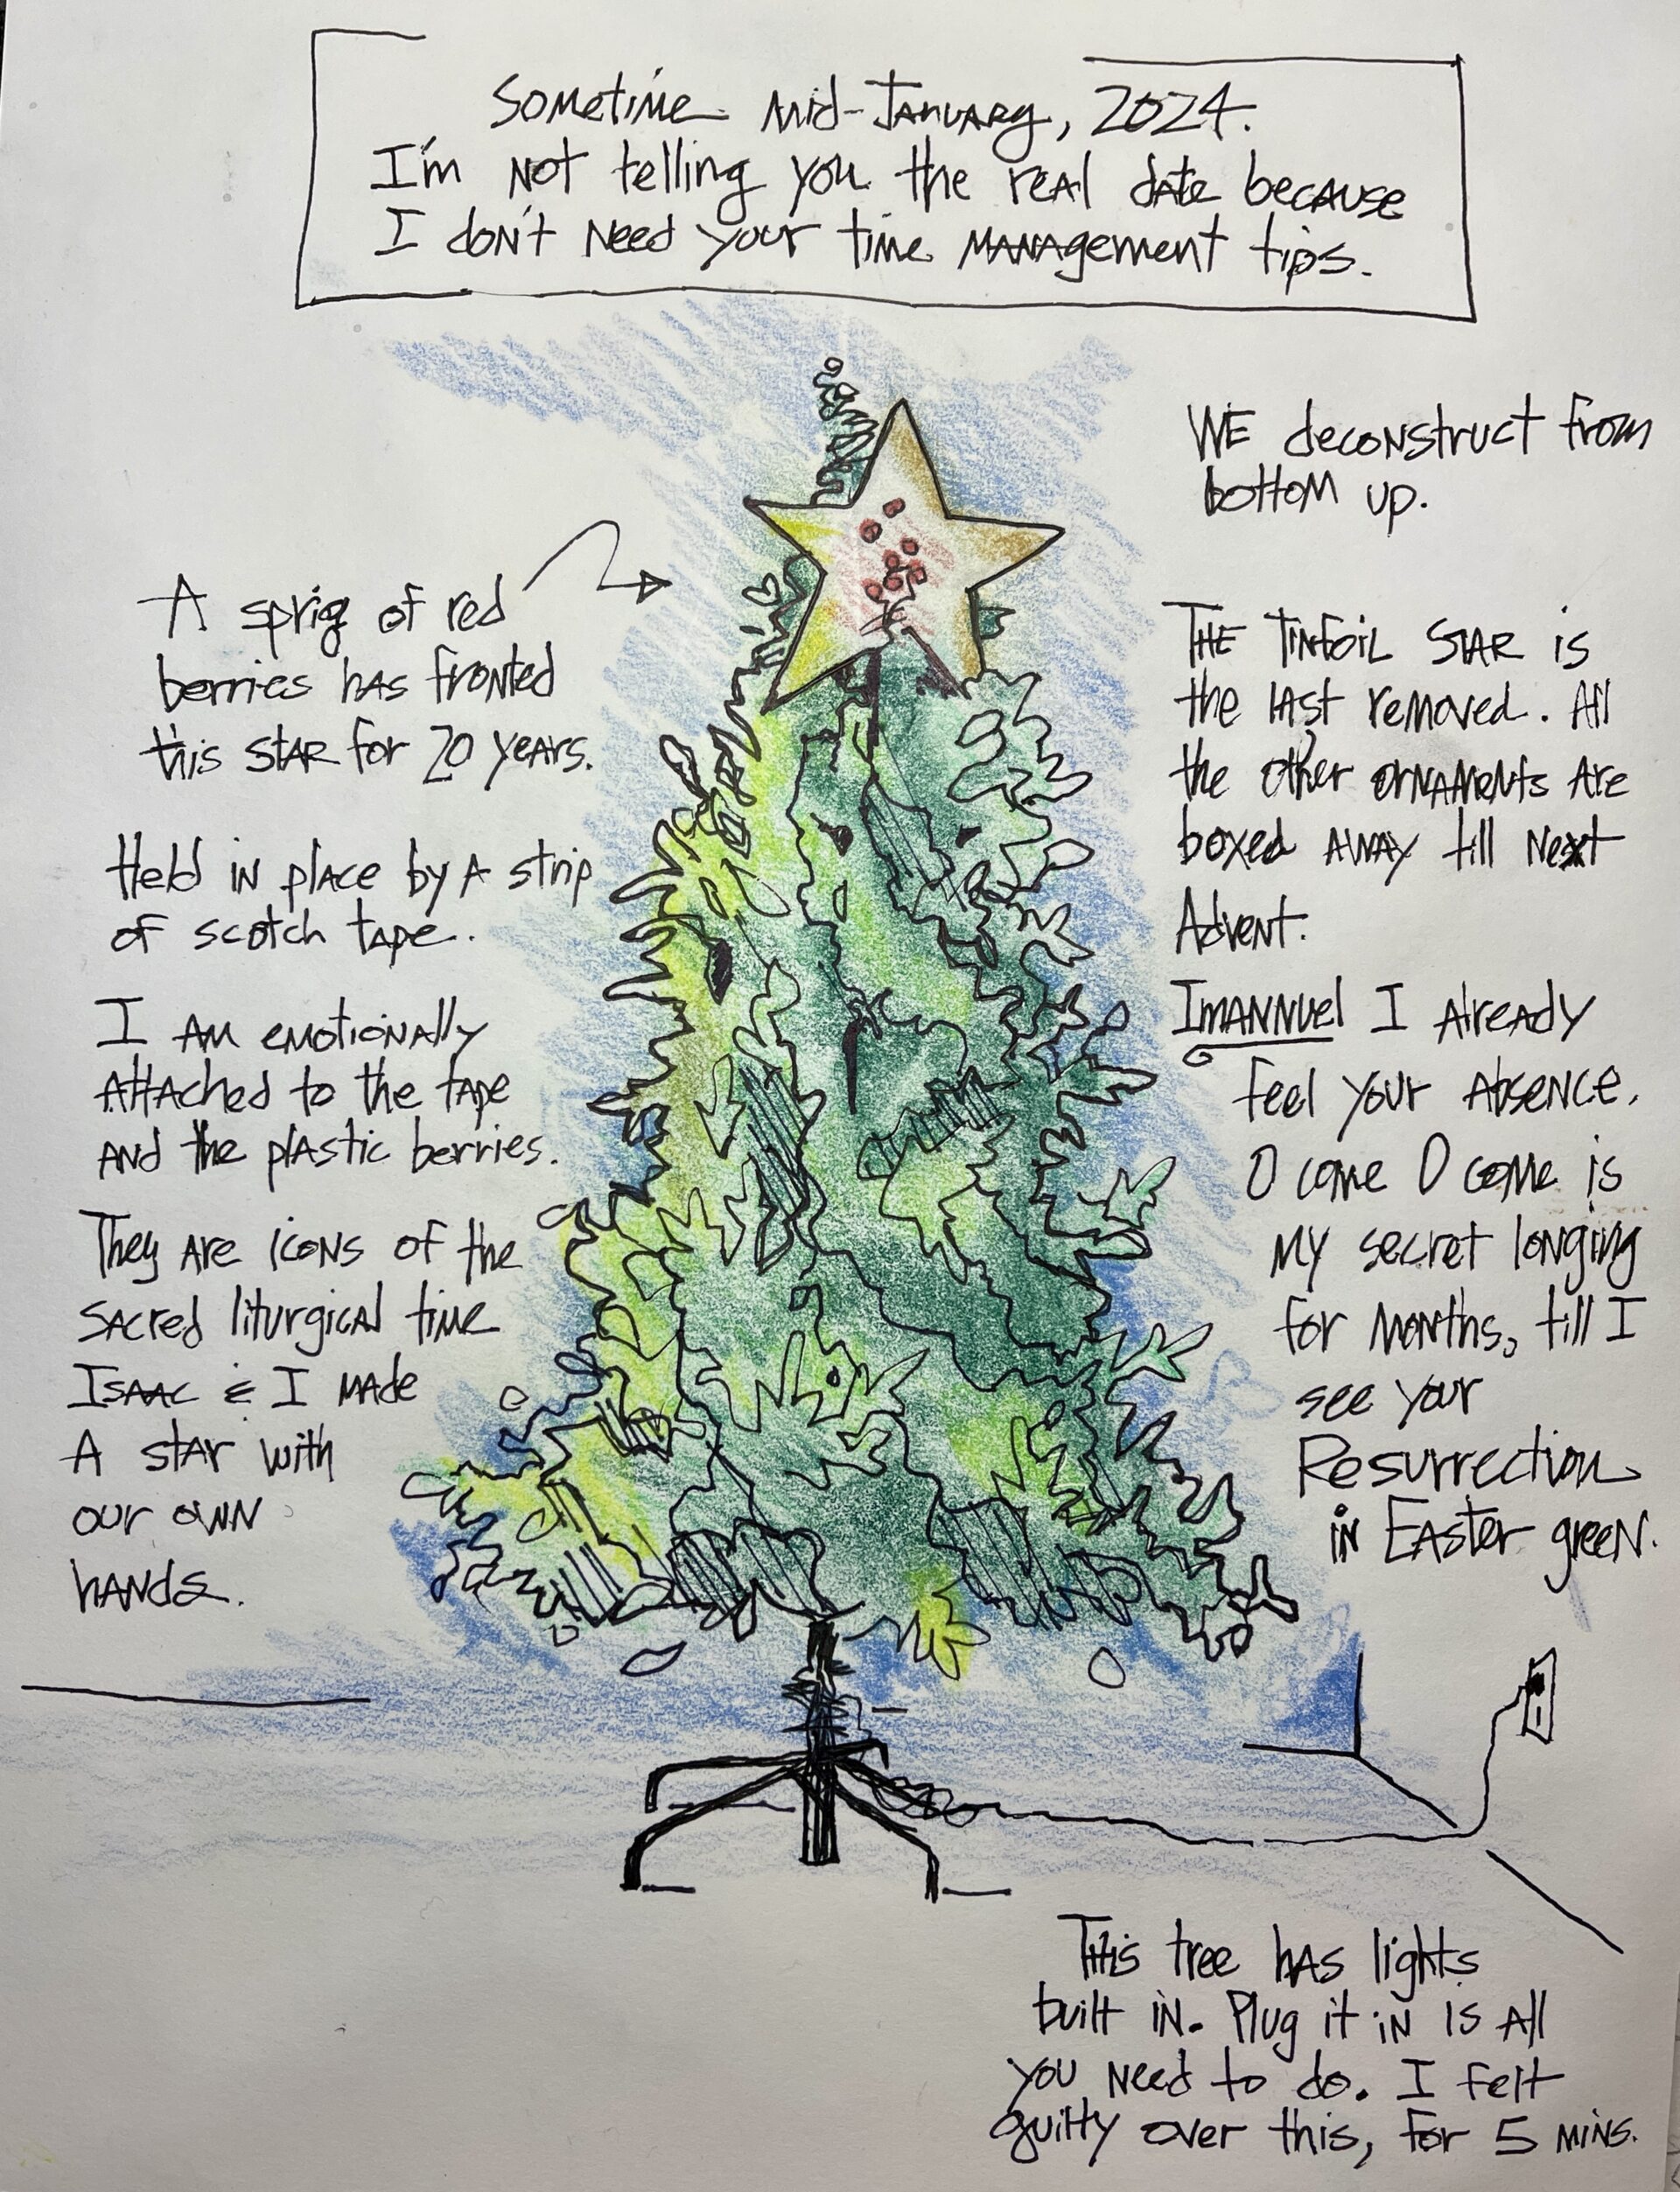 Sometime mid-January, 2024.
I'm not telling you the real date because
I don't need your time management tips.
A sprig of red
berries has fronted
this star for 20 years.
Held in place by a strip
of scotch tape.
I am emotionally
attached to the tape
and the plastic berries.
They are icons of the
sacred liturgical time
Isaac & I made
a star with
our own
hands.
We deconstruct from
bottom up.
The tinfoil star is
the last removed. All
the other ornaments are
boxed away till next
Advent.
Imannuel I already
feel your absence.
O come O come is
my secret longing
for months, till I
see your
Resurrection
in Easter green.
This tree has lights
built in. Plug it in is all
you need to do. I felt
guilty over this, for 5 mins.